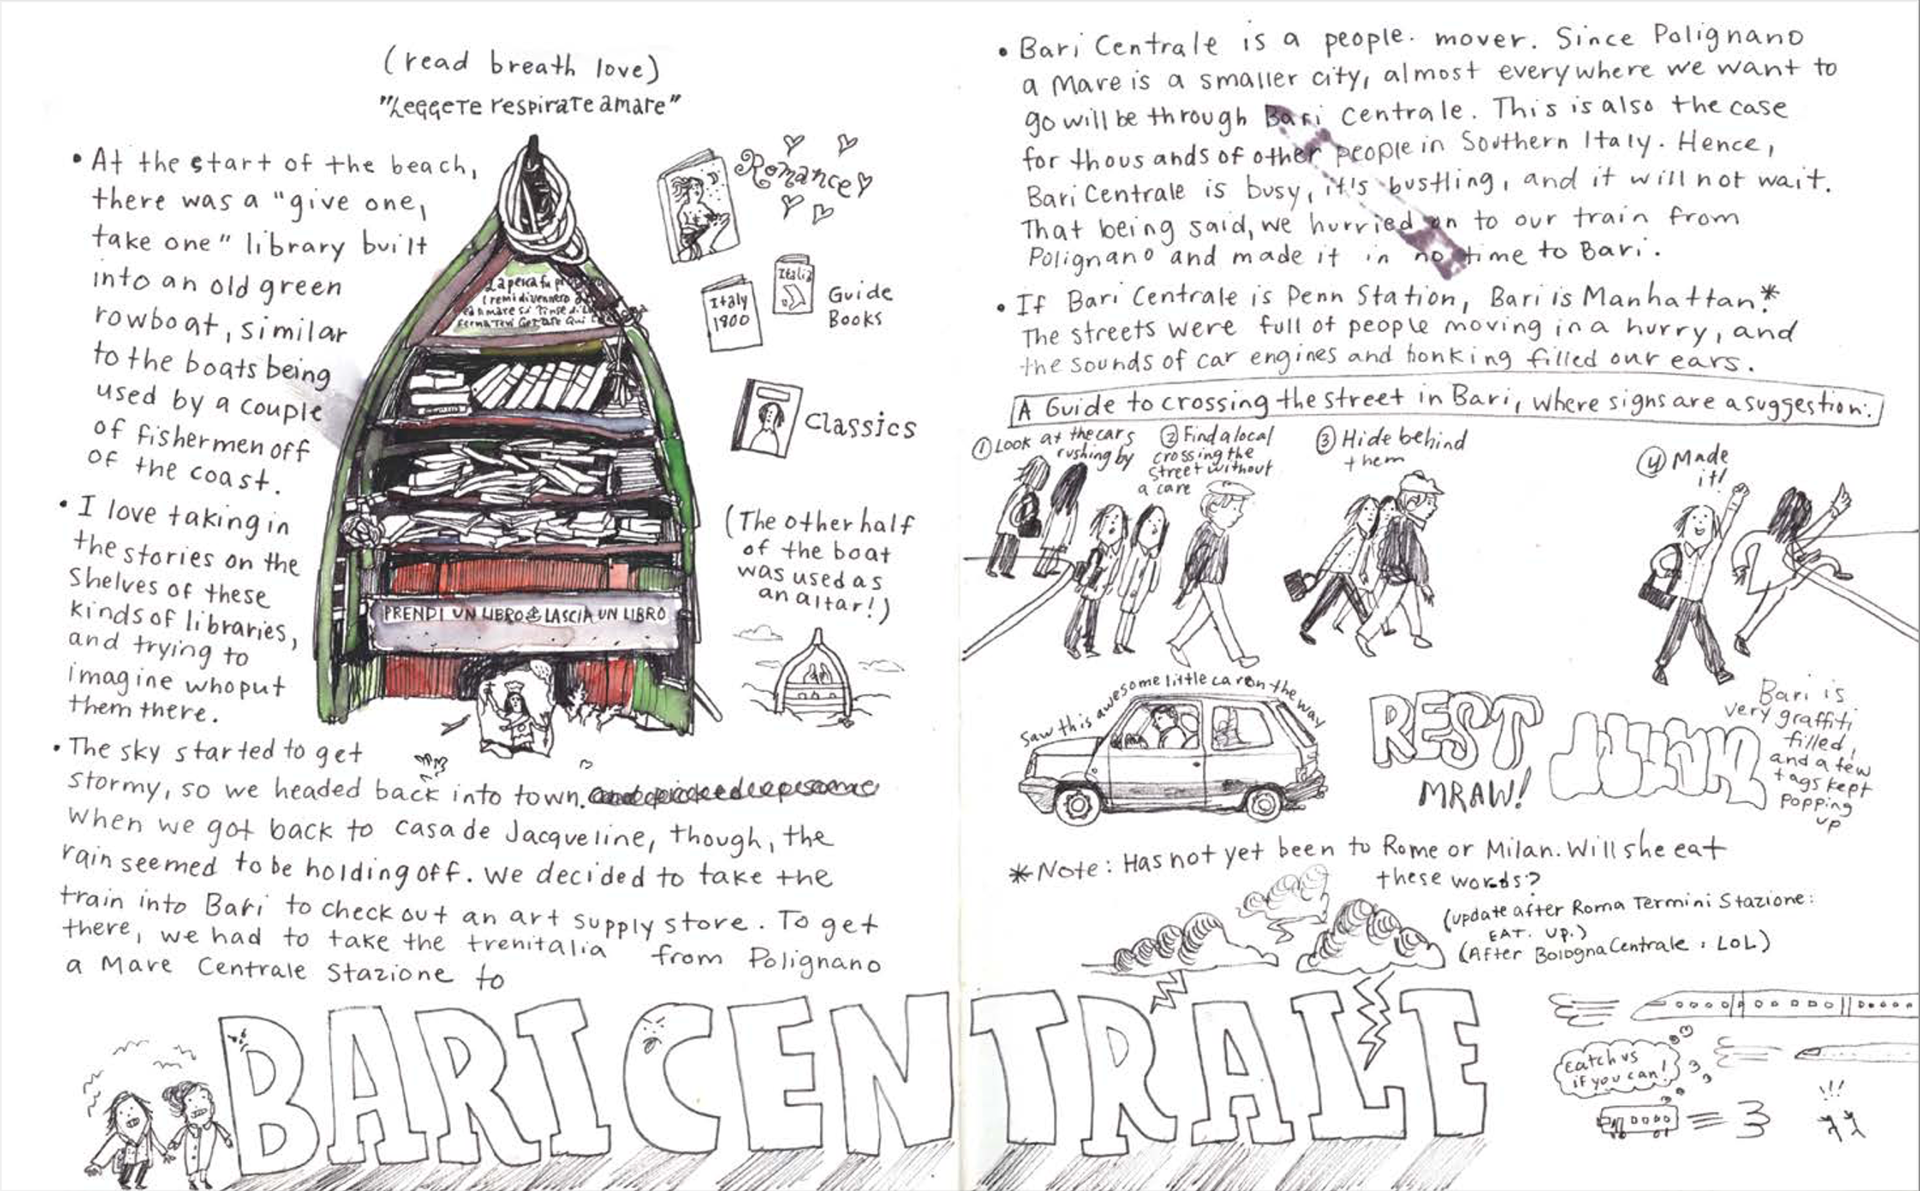 (read breath love)
"Leggete respirate amare"
• At the start of the beach,
there was a "give one,
take one" library built
into an old green
rowboat, similar
to the boats being
used by a couple
of fishermen off
of the coast.
• I love taking in
the stories on the
shelves of these
kinds of libraries,
and trying to
imagine who put
them there.
Romance
Italia
Italy
1900
Guide
Books
Classics
(The other half
of the boat
was used as
an altar!)
PRENDI UN LIBRO & LASCIA UN LIBRO
• The sky started to get
stormy, so we headed back into town.
When we got back to casa de Jacqueline, though, the
rain seemed to be holding off. We decided to take the
train into Bari to check out an art supply store. To get
there, we had to take the trenitalia from Polignano
a Mare Centrale Stazione to
BARI CENTRALE
• Bari Centrale is a people-mover. Since Polignano
a Mare is a smaller city, almost everywhere we want to
go will be through Bari Centrale. This is also the case
for thousands of other people in Southern Italy. Hence,
Bari Centrale is busy, it's bustling, and it will not wait.
That being said, we hurried on to our train from
Polignano and made it in no time to Bari.
• If Bari Centrale is Penn Station, Bari is Manhattan.*
The streets were full of people moving in a hurry, and
the sounds of car engines and honking filled our ears.
A Guide to crossing the street in Bari, where signs are a suggestion:
① Look at the cars
rushing by
② Find a local
crossing the
street without
a care
③ Hide behind
them
④ Made
it!
Saw this awesome little car on the way
REST
MRAW!
Bari is
very graffiti
filled,
and a few
tags kept
popping
up
*Note: Has not yet been to Rome or Milan. Will she eat
these words?
(update after Roma Termini Stazione:
EAT. UP.)
(After Bologna Centrale: LOL)
Catch us
if you can!
!!!